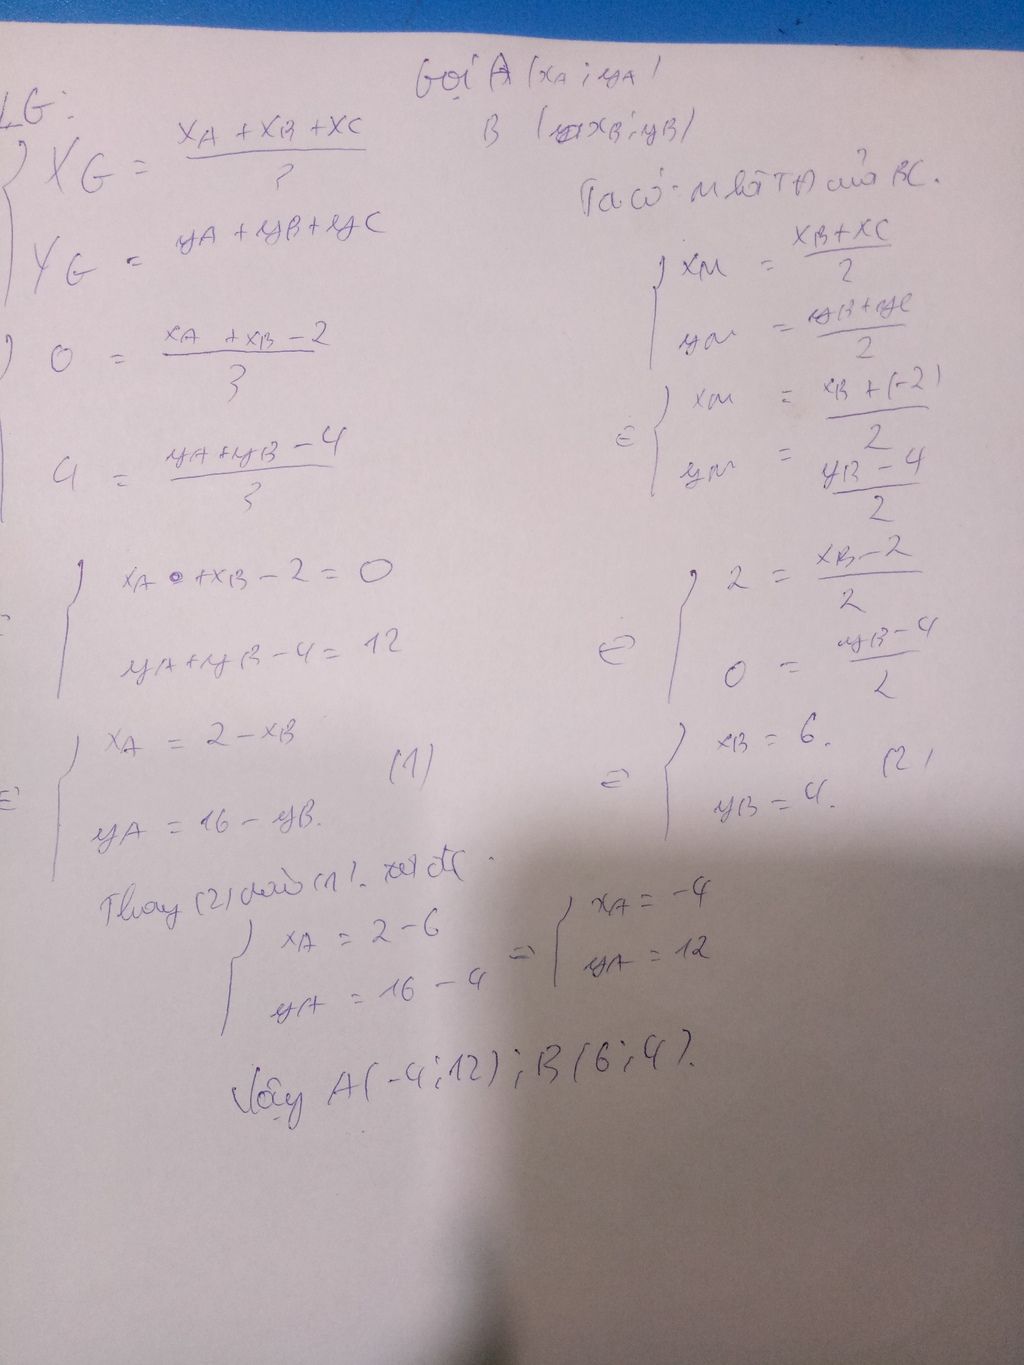 Gọi A (xA ; yA)
B (xB ; yB)
LG:
xG = xA + xB + xC / 3
yG = yA + yB + yC
0 = xA + xB - 2 / 3
4 = yA + yB - 4 / 3
xA + xB - 2 = 0
yA + yB - 4 = 12
xA = 2 - xB
(1)
yA = 16 - yB.
Ta có: M là TĐ của BC.
xM = xB + xC / 2
yM = yB + yC / 2
xM = xB + (-2) / 2
yM = yB - 4 / 2
⇔ 2 = xB - 2 / 2
0 = yB - 4 / 2
xB = 6.
(2)
yB = 4.
Thay (2) vào (1). ta đc
xA = 2 - 6
yA = 16 - 4
⇒ xA = -4
yA = 12
Vậy A(-4; 12) ; B (6; 4).